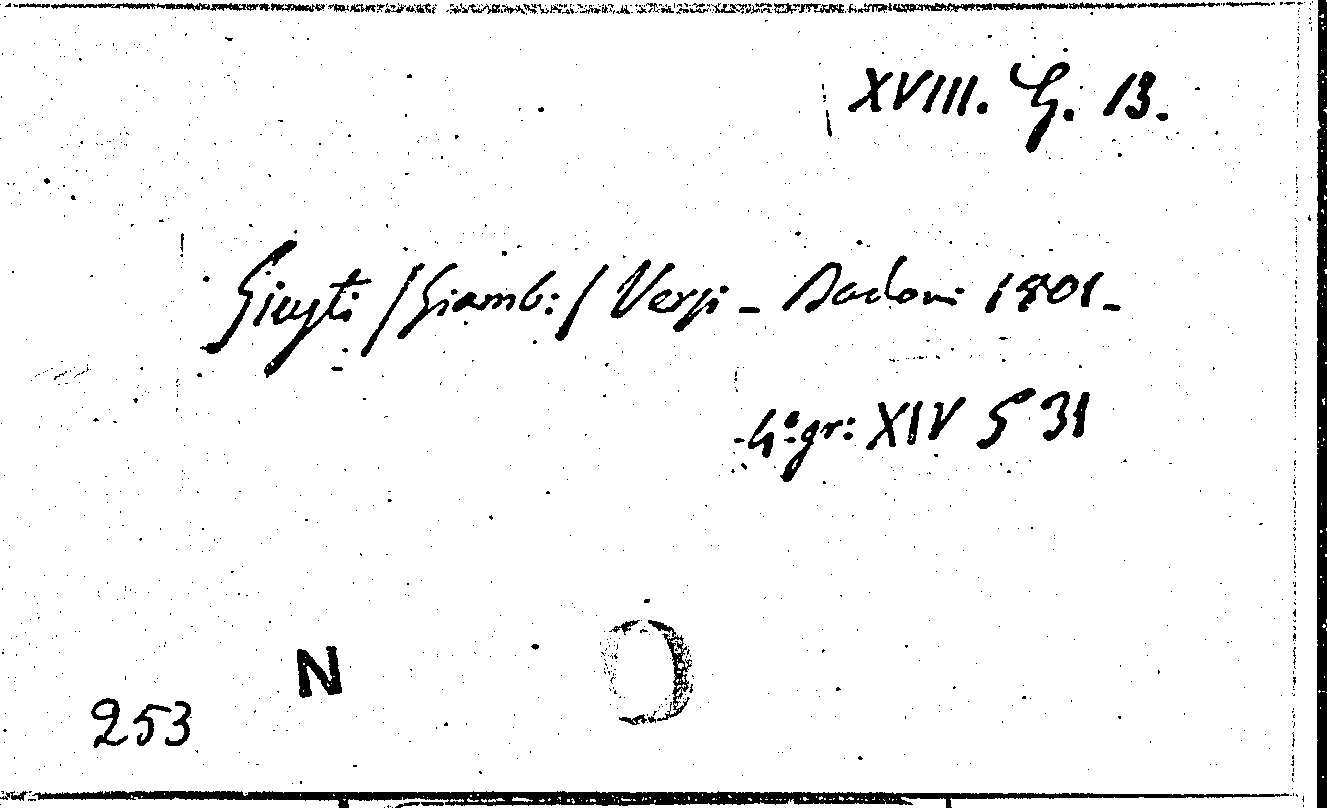 XVIII. G. 13.
Giusti /Giamb:/ Versi – Padova 1801 –
4º gr: XIV G 31
N
253